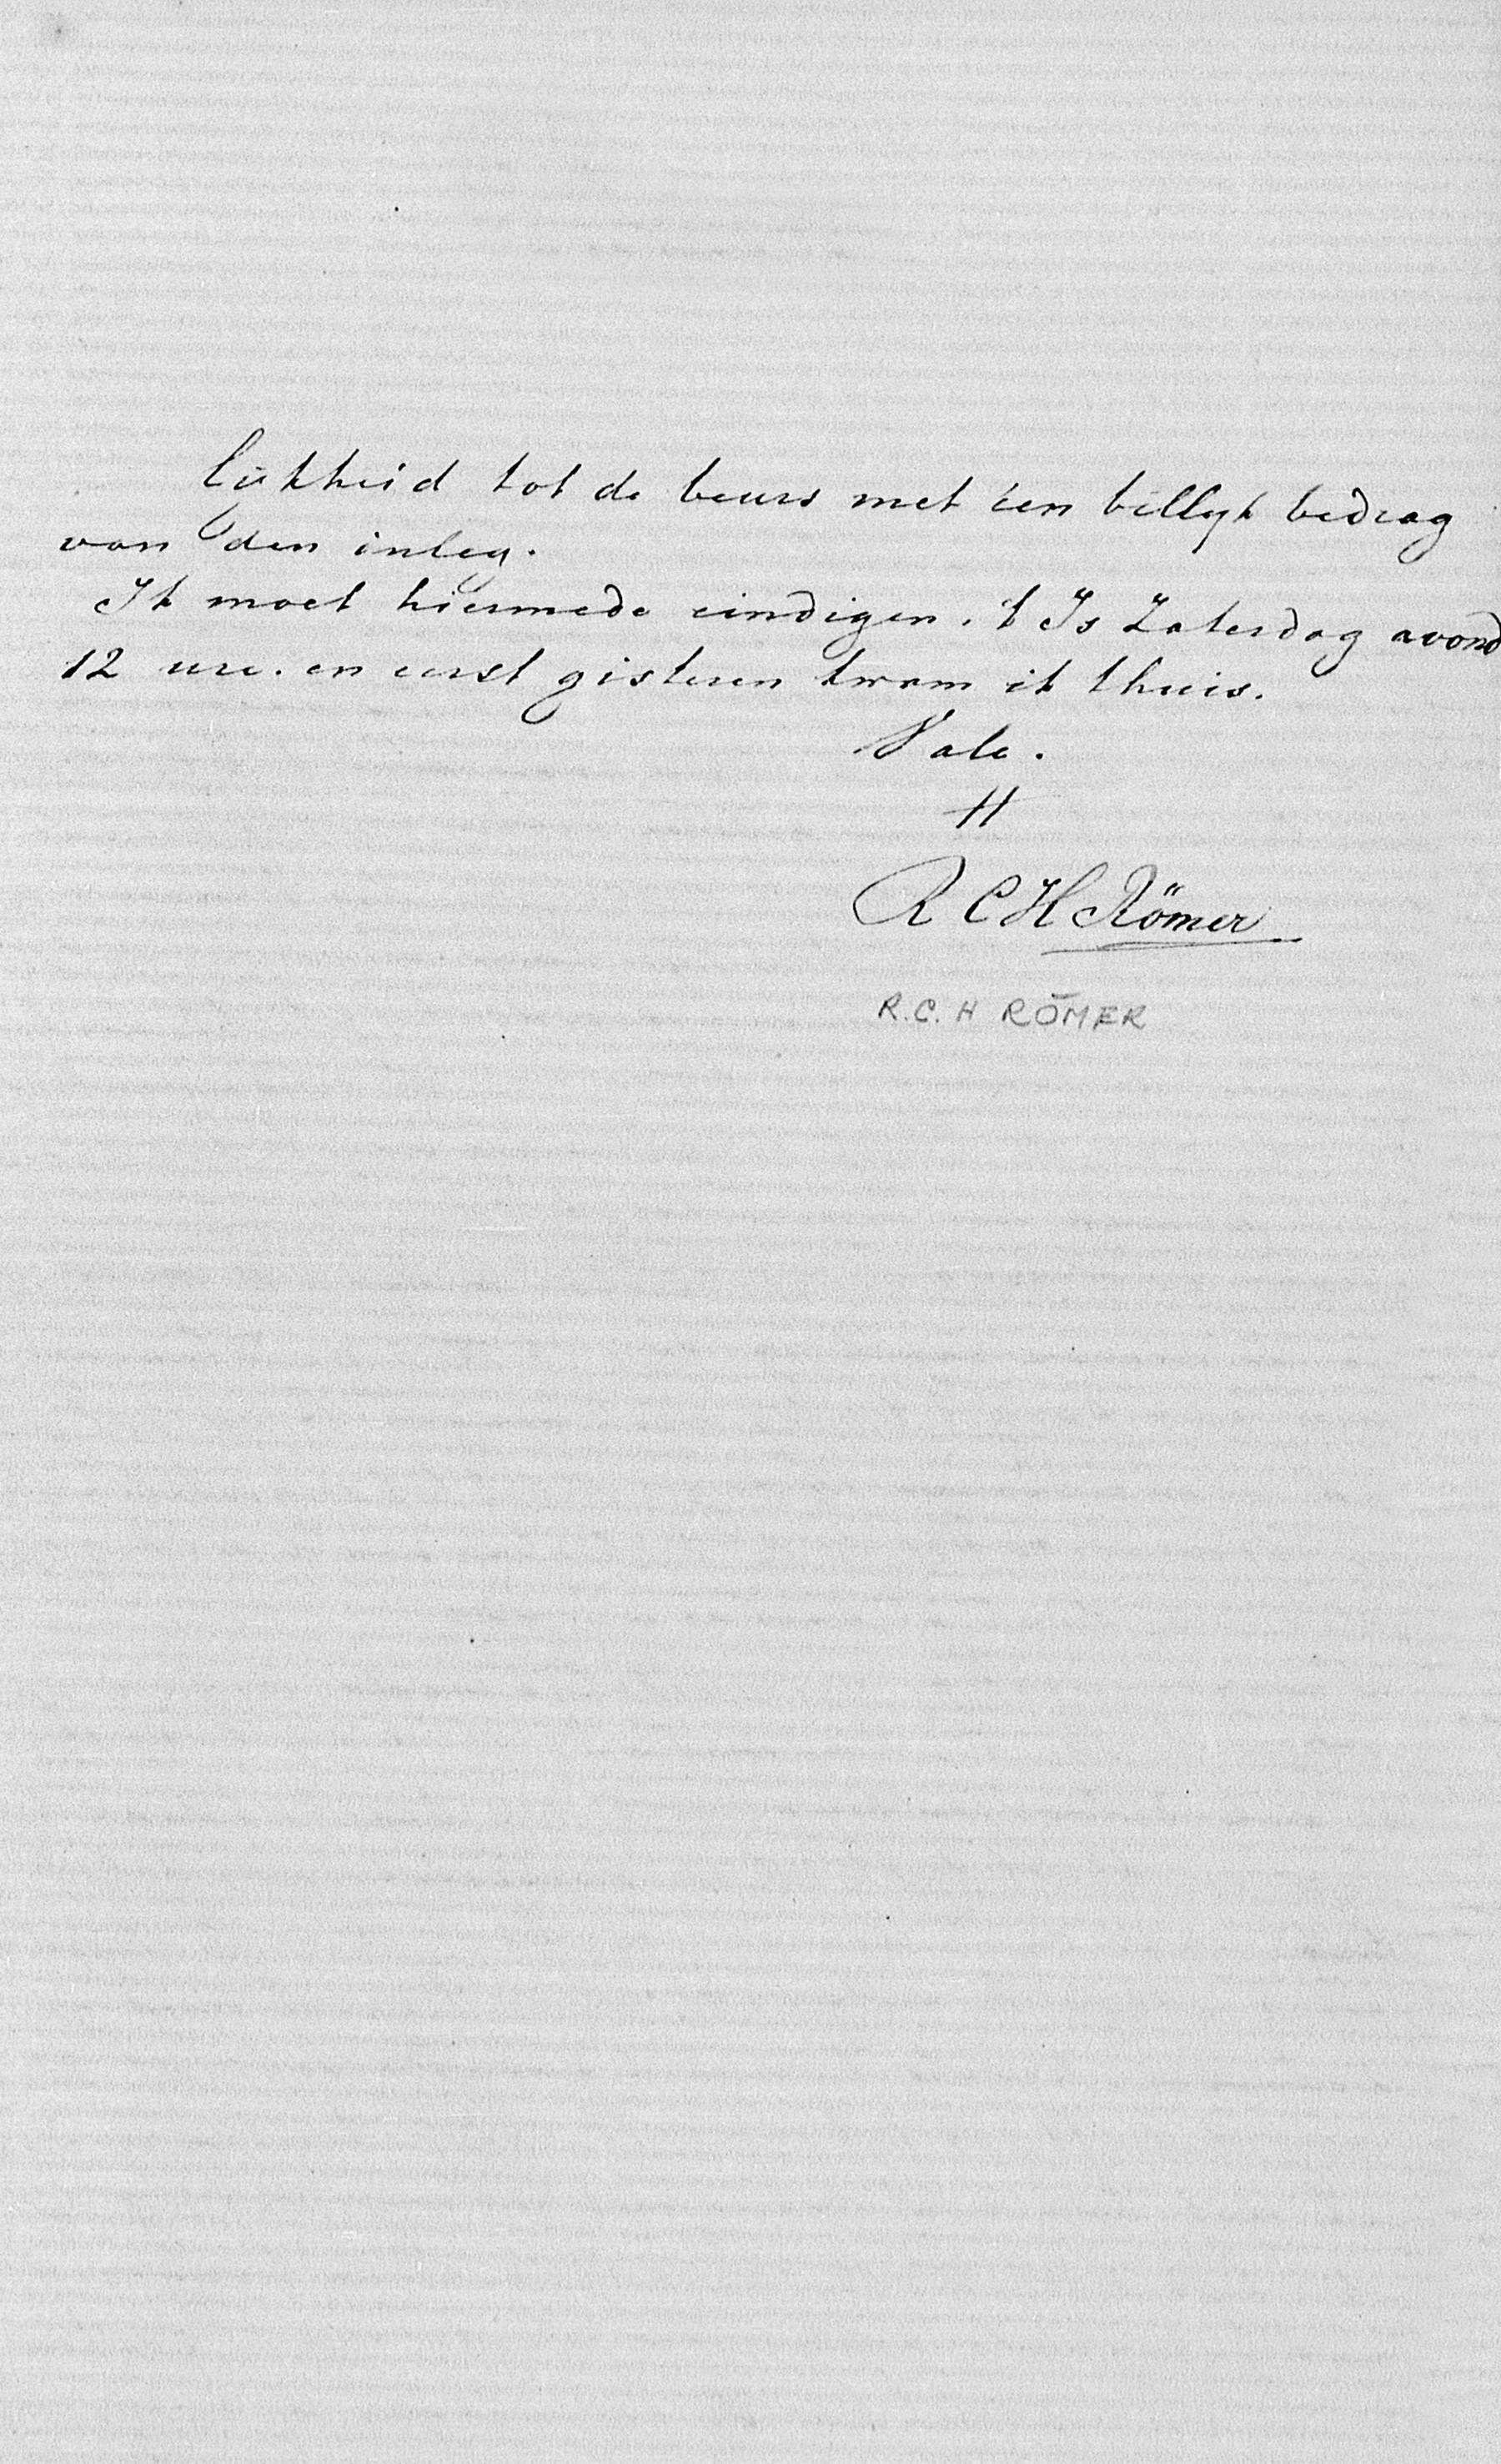 lijkheid tot de beurs met een billijk bedrag
van den inleg.
Ik moet hiermede eindigen. 't Is Zaterdag avond
12 ure. en eerst gisteren kwam ik thuis.
Vale.
tt
R C H Römer
R.C.H RÖMER